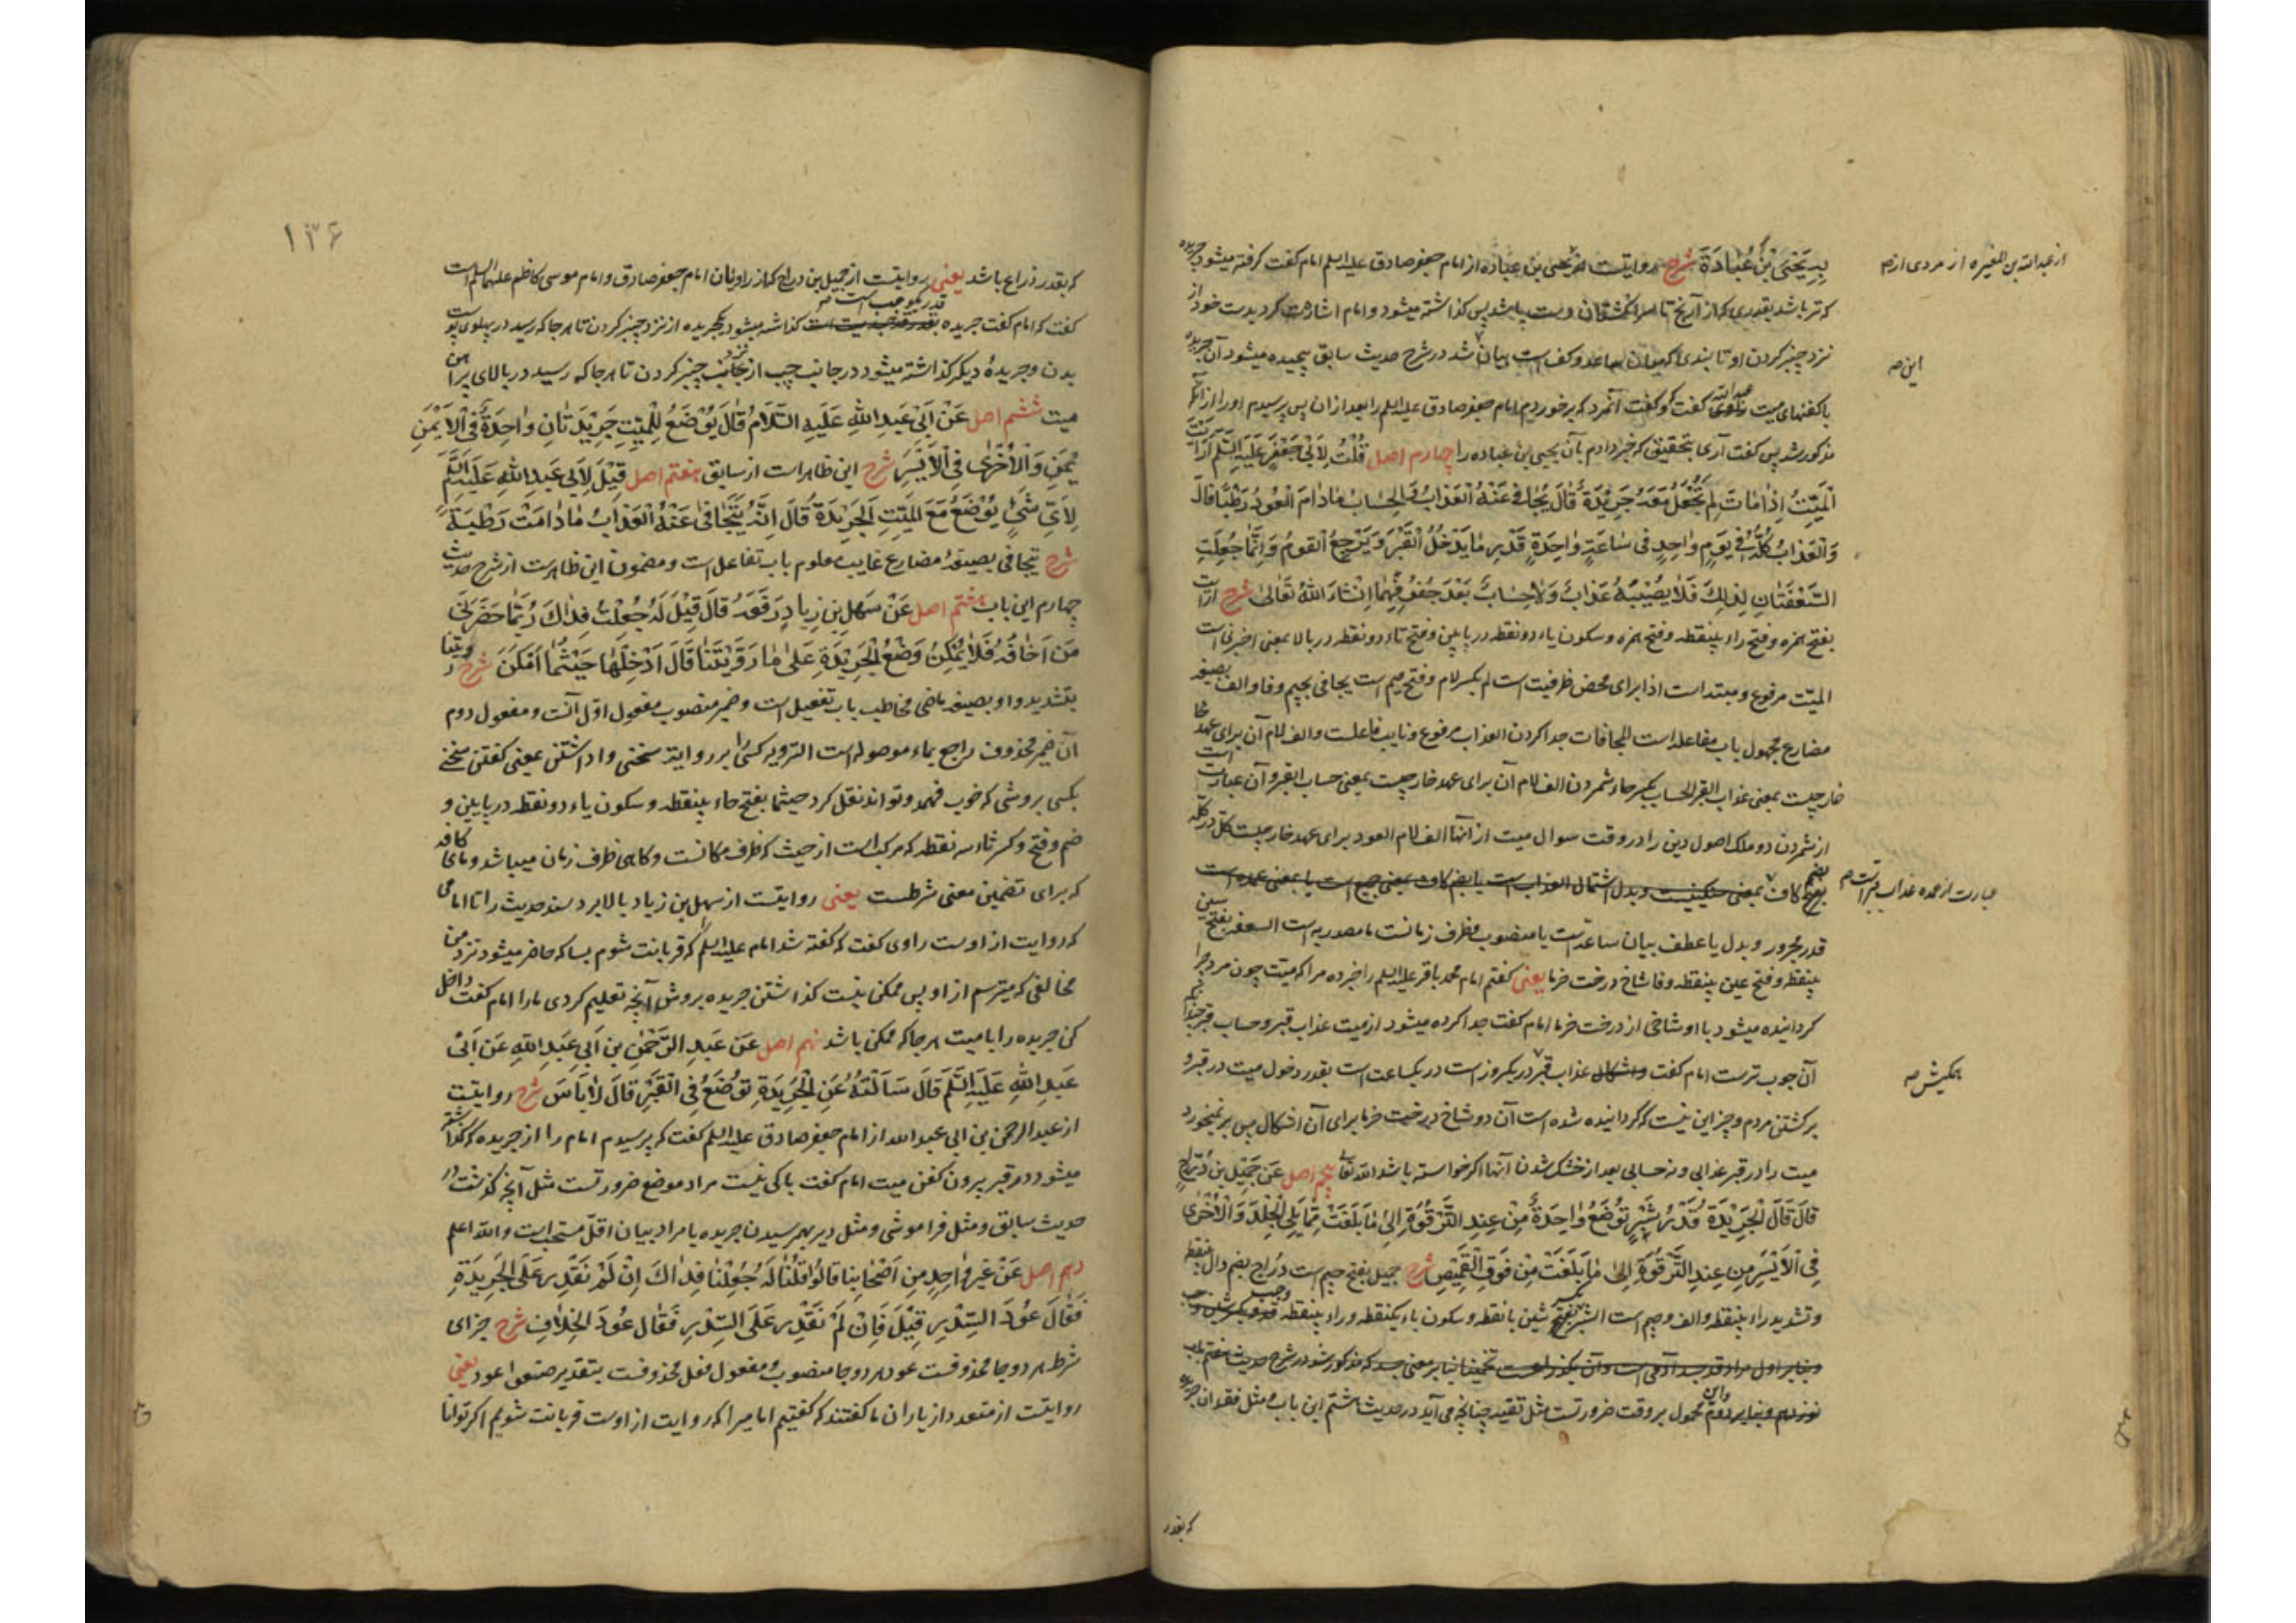 بِهِ يَحْيَى بْنَ عُبَادَةَ شرح روایتست از یحیی بن عباده از امام جعفر صادق علیه السلم امام گفت گرفته میشود جریده
از عبدالله بن المغیره از مردی از صه
که تر باشد بقدری که از آرنج تا سر انگشتان دست باشد پس گذاشته میشود و امام اشارت کرد بدست خود از
نزد چنبر کردن او تا بندی که میان ساعد و کف است بیان شد در شرح حدیث سابق پیچیده میشود آن جریده
این صه
با کفنهای میت راوی عبدالله گفت که و گفت آنمرد که برخوردم امام جعفر صادق علیه السلم را بعد از ان پس پرسیدم او را از آنچه
مذکور شد پس گفت آری بتحقیق که خبر دادم بآن یحیی بن عباده را چهارم اصل قُلْتُ لِاَبِی جَعْفَرٍ عَلَیْهِ السَّلَم اَرَاَیْتَ
الْمَیِّتُ اِذٰا مٰاتَ لِمَ تُجْعَلُ مَعَهُ جَرِیْدَةٌ قٰالَ یُجٰافٰی عَنْهُ الْعَذٰابُ وَ الْحِسٰابُ مٰادٰامَ الْعُوْدُ رَطْبًا قٰالَ
وَ الْعَذٰابُ کُلُّهُ فِی یَوْمٍ وٰاحِدٍ فِی سٰاعَةٍ وٰاحِدَةٍ قَدْرِ مٰا یَدْخُلُ الْقَبْرَ وَ یَرْجِعُ الْقَوْمُ وَ اِنَّمٰا جُعِلَتِ
السَّعْفَتٰانِ لِذٰلِکَ فَلٰا یُصِیْبُهُ عَذٰابٌ وَ لٰا حِسٰابٌ بَعْدَ جُفُوفِهِمٰا اِنْشٰاءَ اللهُ تَعٰالیٰ شرح ارایت
بفتح همزه و فتح راء بینقطه و فتح همزه و سکون یاء دو نقطه در پایین و فتح تاء دو نقطه در بالا بمعنی اخبرنی است
المیّت مرفوع و مبتداست اذا برای محض ظرفیت است لم بکسر لام و فتح میم است یجافی بجیم و فا و الف بصیغه
مضارع مجهول باب مفاعله است المجافات جدا کردن العذاب مرفوع و نایب فاعلست و الف لام آن برای عهد
خارجیست بمعنی عذاب القبر الحساب بکسر حاء شمردن الف لام آن برای عهد خارجیست بمعنی حساب القبر و آن عبارتست
از شمردن دو ملک اصول دین را در وقت سوال میت از آنها الف لام العود برای عهد خارجیست کل در کله
بضم کاف بمعنی و بدل اشتمال العذاب است یا بضم کاف بمعنی جمیع است یا بمعنی عمده است
عبارت از عمده عذاب قبر است صه
قدر مجرور و بدل یا عطف بیان ساعة است یا منصوب و ظرف زمانست ما مصدریه است السعفه بفتح سین
بینقطه و فتح عین بینقطه و فا شاخ درخت خرما یعنی گفتم امام محمد باقر علیه السلم را خبر ده مرا که میّت چون مرد چرا
گردانیده میشود با او شاخی از درخت خرما امام گفت جدا کرده میشود از میت عذاب قبر و حساب قبر
آن چوب ترست امام گفت عذاب قبر در یکروز است در یکساعت است بقدر دخول میت در قبر و
همگیش صه
برگشتن مردم و جز این نیست که گردانیده شده است آن دو شاخ درخت خرما برای آن اشکال پس بر نمیخورد
میت را در قبر عذابی و نه حسابی بعد از خشک شدن آنها اگر خواسته باشد الله تعالی پنجم اصل عَنْ جَمِیْلِ بْنِ دُرّٰاجٍ
قٰالَ قٰالَ الْجَرِیْدَةُ قَدْرُ شِبْرٍ تُوضَعُ وٰاحِدَةٌ مِنْ عِنْدِ التَّرْقُوَةِ اِلیٰ مٰا بَلَغَتْ مِمّٰا یَلِی الْجِلْدَ وَ الْاُخْریٰ
فِی الْاَیْسَرِ مِنْ عِنْدِ التَّرْقُوَةِ اِلیٰ مٰا بَلَغَتْ مِنْ فَوْقِ الْقَمِیْصِ شرح جمیل بفتح جیم است دراج بضم دال بینقطه
و تشدید راء بینقطه و الف و جیم است الشبر بکسر شین با نقطه و سکون باء یکنقطه و راء بینقطه
و بنابر اول مراد قد جسد آدمی است و آن یکذراعست تخمینا بنابر معنی جسد که مذکور شد در شرح حدیث هفتم باب
نوزدهم و بنابر دوم و این محمول بر وقت ضرورتست مثل تقیه چنانچه می آید در حدیث هشتم این باب و مثل فقدان جریده
که بقدر
۱۳۶
که بقدر ذراع باشد یعنی روایتست از جمیل بن دراج که از راویان امام جعفر صادق و امام موسی کاظم علیهما السلام است
گفت که امام گفت جریده بقدر قدر یکوجب است صه گذاشته میشود یکجریده از نزد چنبر گردن تا هر جا که رسید در پهلوی پوست
بدن و جریدهٔ دیگر گذاشته میشود در جانب چپ از نزد چنبر کردن تا هر جا که رسید در بالای پیراهن
میت ششم اصل عَنْ اَبِی عَبْدِ اللهِ عَلَیْهِ السَّلَامُ قٰالَ یُوْضَعُ لِلْمَیِّتِ جَرِیْدَتٰانِ وٰاحِدَةٌ فِی الْاَیْمَنِ
وَ الْاُخْریٰ فِی الْاَیْسَرِ شرح این ظاهر است از سابق هفتم اصل قِیْلَ لِاَبِی عَبْدِ اللهِ عَلَیْهِ السَّلَم
لِاَیِّ شَیْءٍ یُوْضَعُ مَعَ الْمَیِّتِ الْجَرِیْدَةُ قٰالَ اِنَّهُ یَتَجٰافیٰ عَنْهُ الْعَذٰابُ مٰادٰامَتْ رَطْبَةً
شرح یتجافی بصیغهٔ مضارع غایب معلوم باب تفاعل است و مضمون این ظاهرست از شرح حدیث
چهارم این باب هشتم اصل عَنْ سَهْلِ بْنِ زِیٰادٍ رَفَعَهُ قٰالَ قِیْلَ لَهُ جُعِلْتُ فِدٰاکَ رُبَّمٰا حَضَرَنِی
مَنْ اَخٰافُهُ فَلٰا یُمْکِنُ وَضْعُ الْجَرِیْدَةِ عَلیٰ مٰا رَوَّیْتَنٰا قٰالَ اَدْخِلْهٰا حَیْثُمٰا اَمْکَنَ شرح رویتنا
بتشدید واو بصیغه ماضی مخاطب باب تفعیل است و ضمیر منصوب مفعول اوّل آنست و مفعول دوم
آن ضمیر محذوف راجع بماء موصوله است الترویه کسی را بر روایت سخنی واداشتن بمعنی گفتن سخنی
بکسی بروشی که خوب فهمد و تواند نقل کرد حیثما بفتح حاء بینقطه و سکون یاء دو نقطه در پایین و
ضم و فتح و کسر ثاء سه نقطه که مرکب است از حیث که ظرف مکانست و گاهی ظرف زمان میباشد و مای کافه
که برای تضمین معنی شرطست یعنی روایتست از سهل بن زیاد بالا برد سند حدیث را تا امامی
که روایت از اوست راوی گفت که گفته شد امام علیه السلم را که قربانت شوم بسا که حاضر میشود نزد من
مخالفی که میترسم از او پس ممکن نیست گذاشتن جریده بروش آنچه تعلیم کردی ما را امام گفت داخل
کن جریده را با میت هر جا که ممکن باشد نهم اصل عَنْ عَبْدِ الرَّحْمٰنِ بْنِ اَبِی عَبْدِ اللهِ عَنْ اَبِی
عَبْدِ اللهِ عَلَیْهِ السَّلَم قٰالَ سَاَلْتُهُ عَنِ الْجَرِیْدَةِ تُوْضَعُ فِی الْقَبْرِ قٰالَ لٰا بَاْسَ شرح روایتست
از عبد الرحمن بن ابی عبد الله از امام جعفر صادق علیه السلم گفت که پرسیدم امام را از جریده که گذاشته
میشود در قبر بیرون کفن میت امام گفت باکی نیست مراد موضع ضرورتست مثل آنچه گذشت در
حدیث سابق و مثل فراموشی و مثل دیر بهم رسیدن جریده یا مراد بیان اقلّ مستحب است و الله اعلم
دهم اصل عَنْ غَیْرِ وٰاحِدٍ مِنْ اَصْحٰابِنٰا قٰالُوا قُلْنٰا لَهُ جُعِلْنٰا فِدٰاکَ اِنْ لَمْ نَقْدِرْ عَلَی الْجَرِیْدَةِ
فَقٰالَ عُوْدَ السِّدْرِ قِیْلَ فَاِنْ لَمْ نَقْدِرْ عَلَی السِّدْرِ فَقٰالَ عُوْدَ الْخِلٰافِ شرح جزای
شرط هر دو جا محذوفست عود هر دو جا منصوب و مفعول فعل محذوفست بتقدیر ضعوا عود یعنی
روایتست از متعدد از یاران ما گفتند که گفتیم امامی را که روایت از اوست قربانت شویم اگر توانا